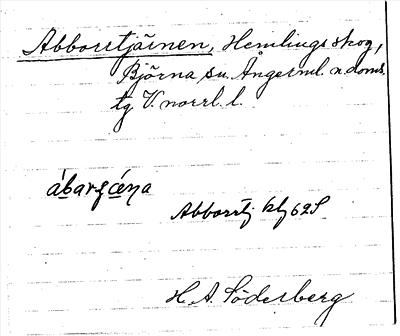 Abborrtjäinen, Hemlings skog,
Björna sn. Ångerml. n. doms.
tg V. norrl. l.
Abborrtj kbl 62S
H. A. Söderberg